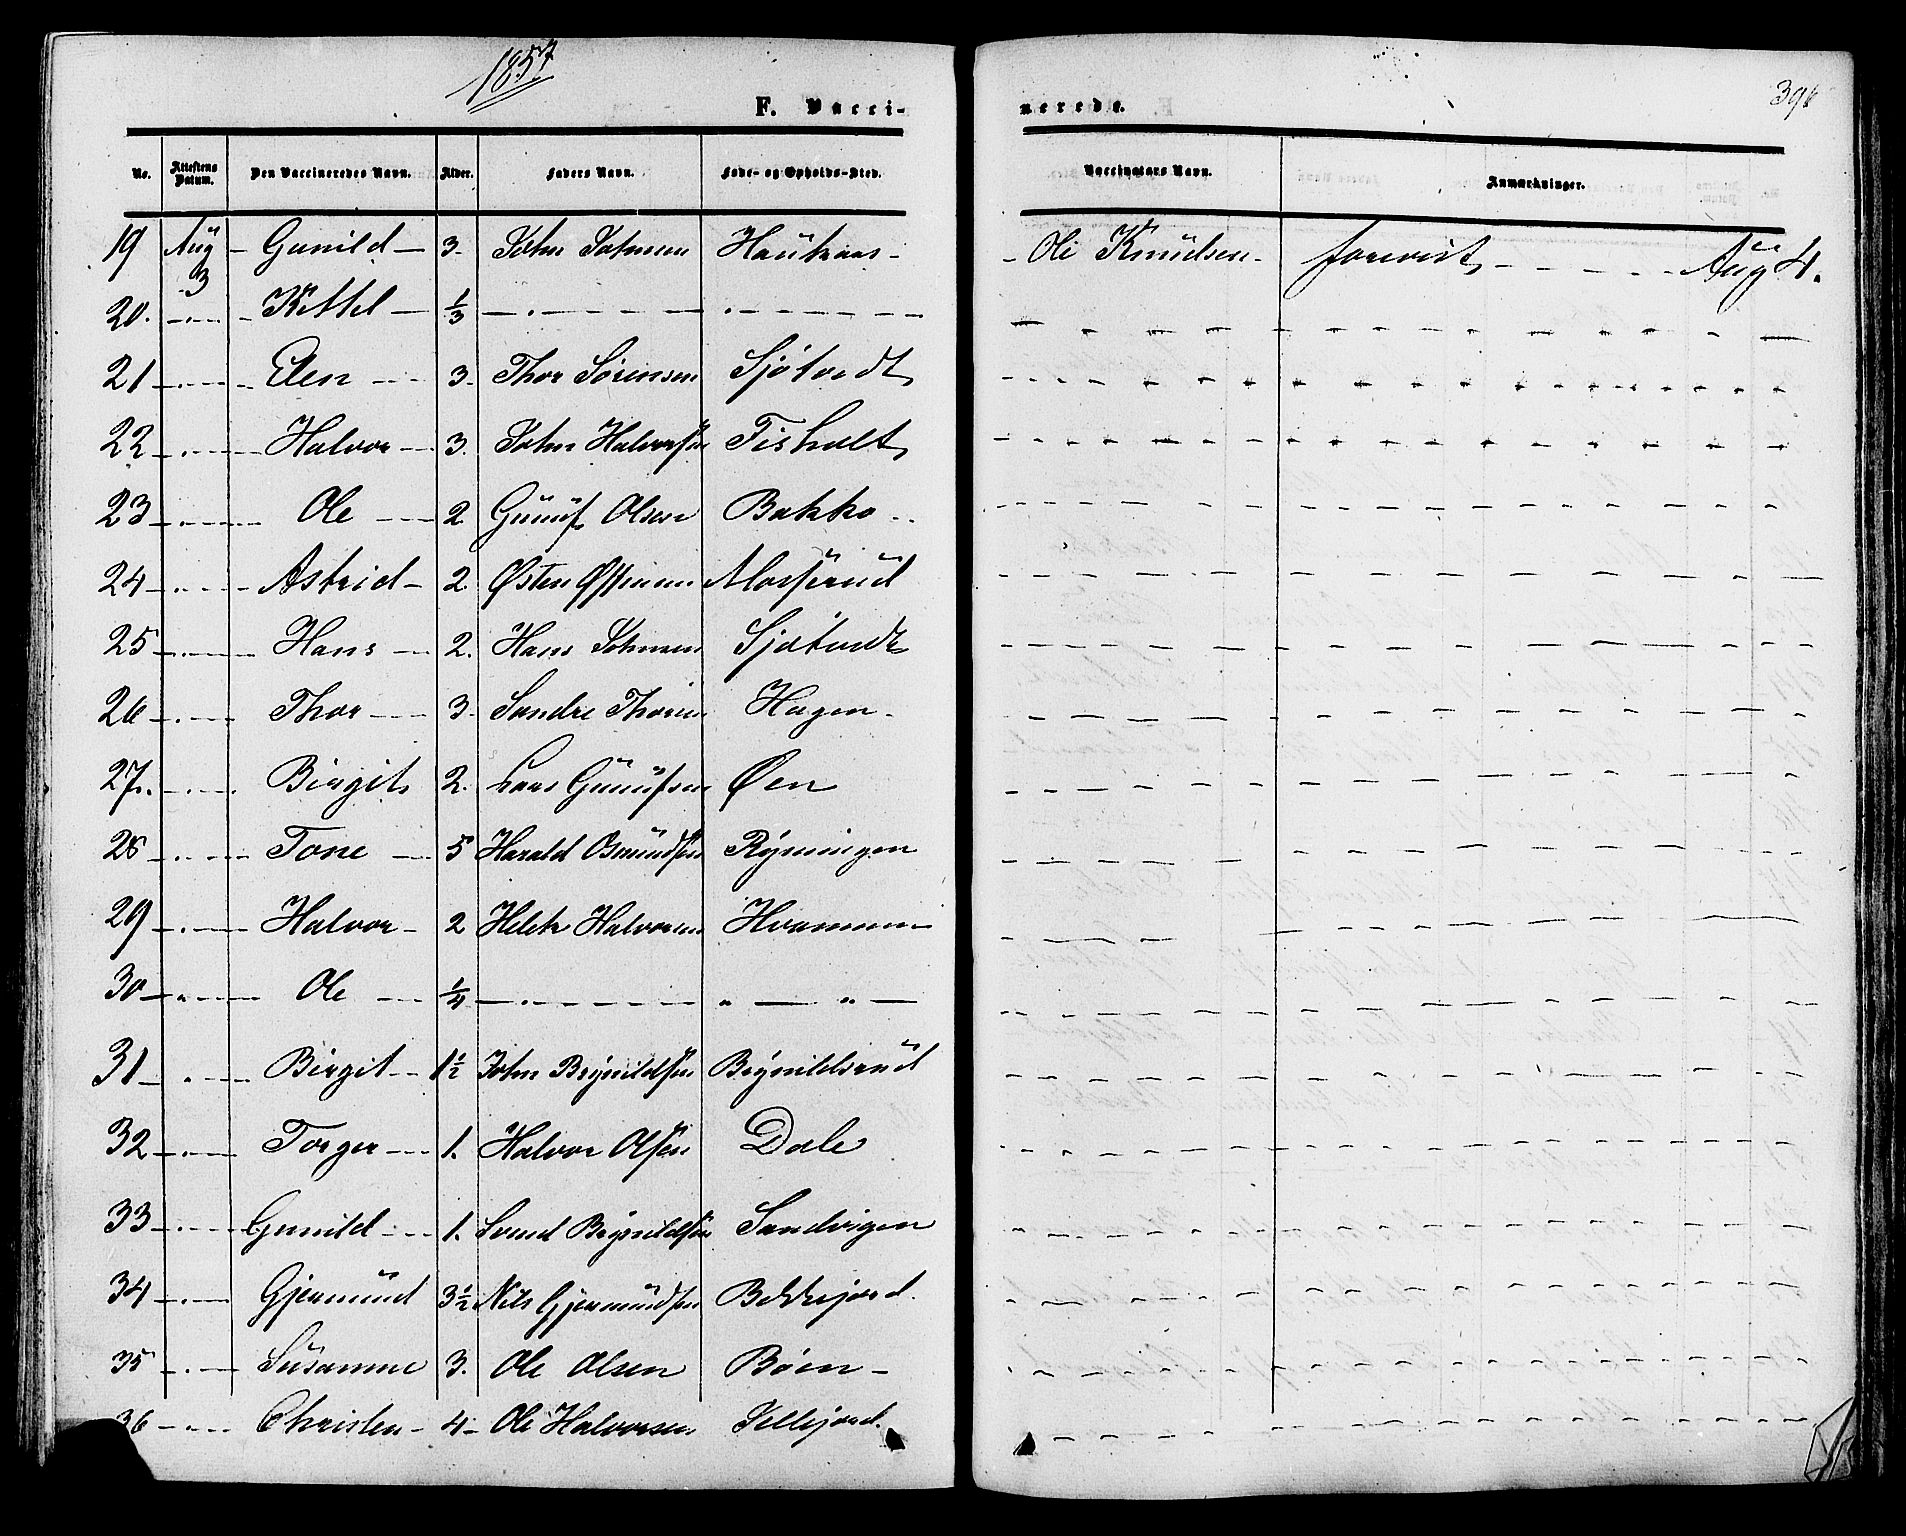 1857
F. Vacci-
nerede.
No. Attestens Datum. Den Vaccineredes Navn. Alder. Faders Navn. Føde- og Opholds-Sted. Vaccinators Navn. Anmærkninger.
19 Aug 3 Gunild 3. John Johnsen Ole Knudsen forevist Aug 4.
20. Kittel 1/3
21 Elen 3. Thor Sørensen Sjøtvedt
22 Halvor 3. John Halvorsen Fisholt
23 Ole 2 Gunuf Olsen Bakka
24 Astrid 2 Østen
25 Hans 2. Hans Johnsen Sjøtvedt
26 Thor 3. Sondre Thorsen Hagen
27. Birgit 2. Lars Gunufsen Øen
28 Tone 5 Harald Osmundsen Ryningen
29 Halvor 2 Halvorsen Hvammen
30 Ole 1/4
31 Birgit 1 1/2 John Brynildsen Brynildsrud
32 Torger 1. Halvor Olsen Dale
33 Gunild 1. Svend Brynildsen Sandvigen
34 Gjermund 3 1/2 Nils Gjermundsen
35 Susanne 3. Ole Olsen Bøen
36 Christen 4 Ole Halvorsen